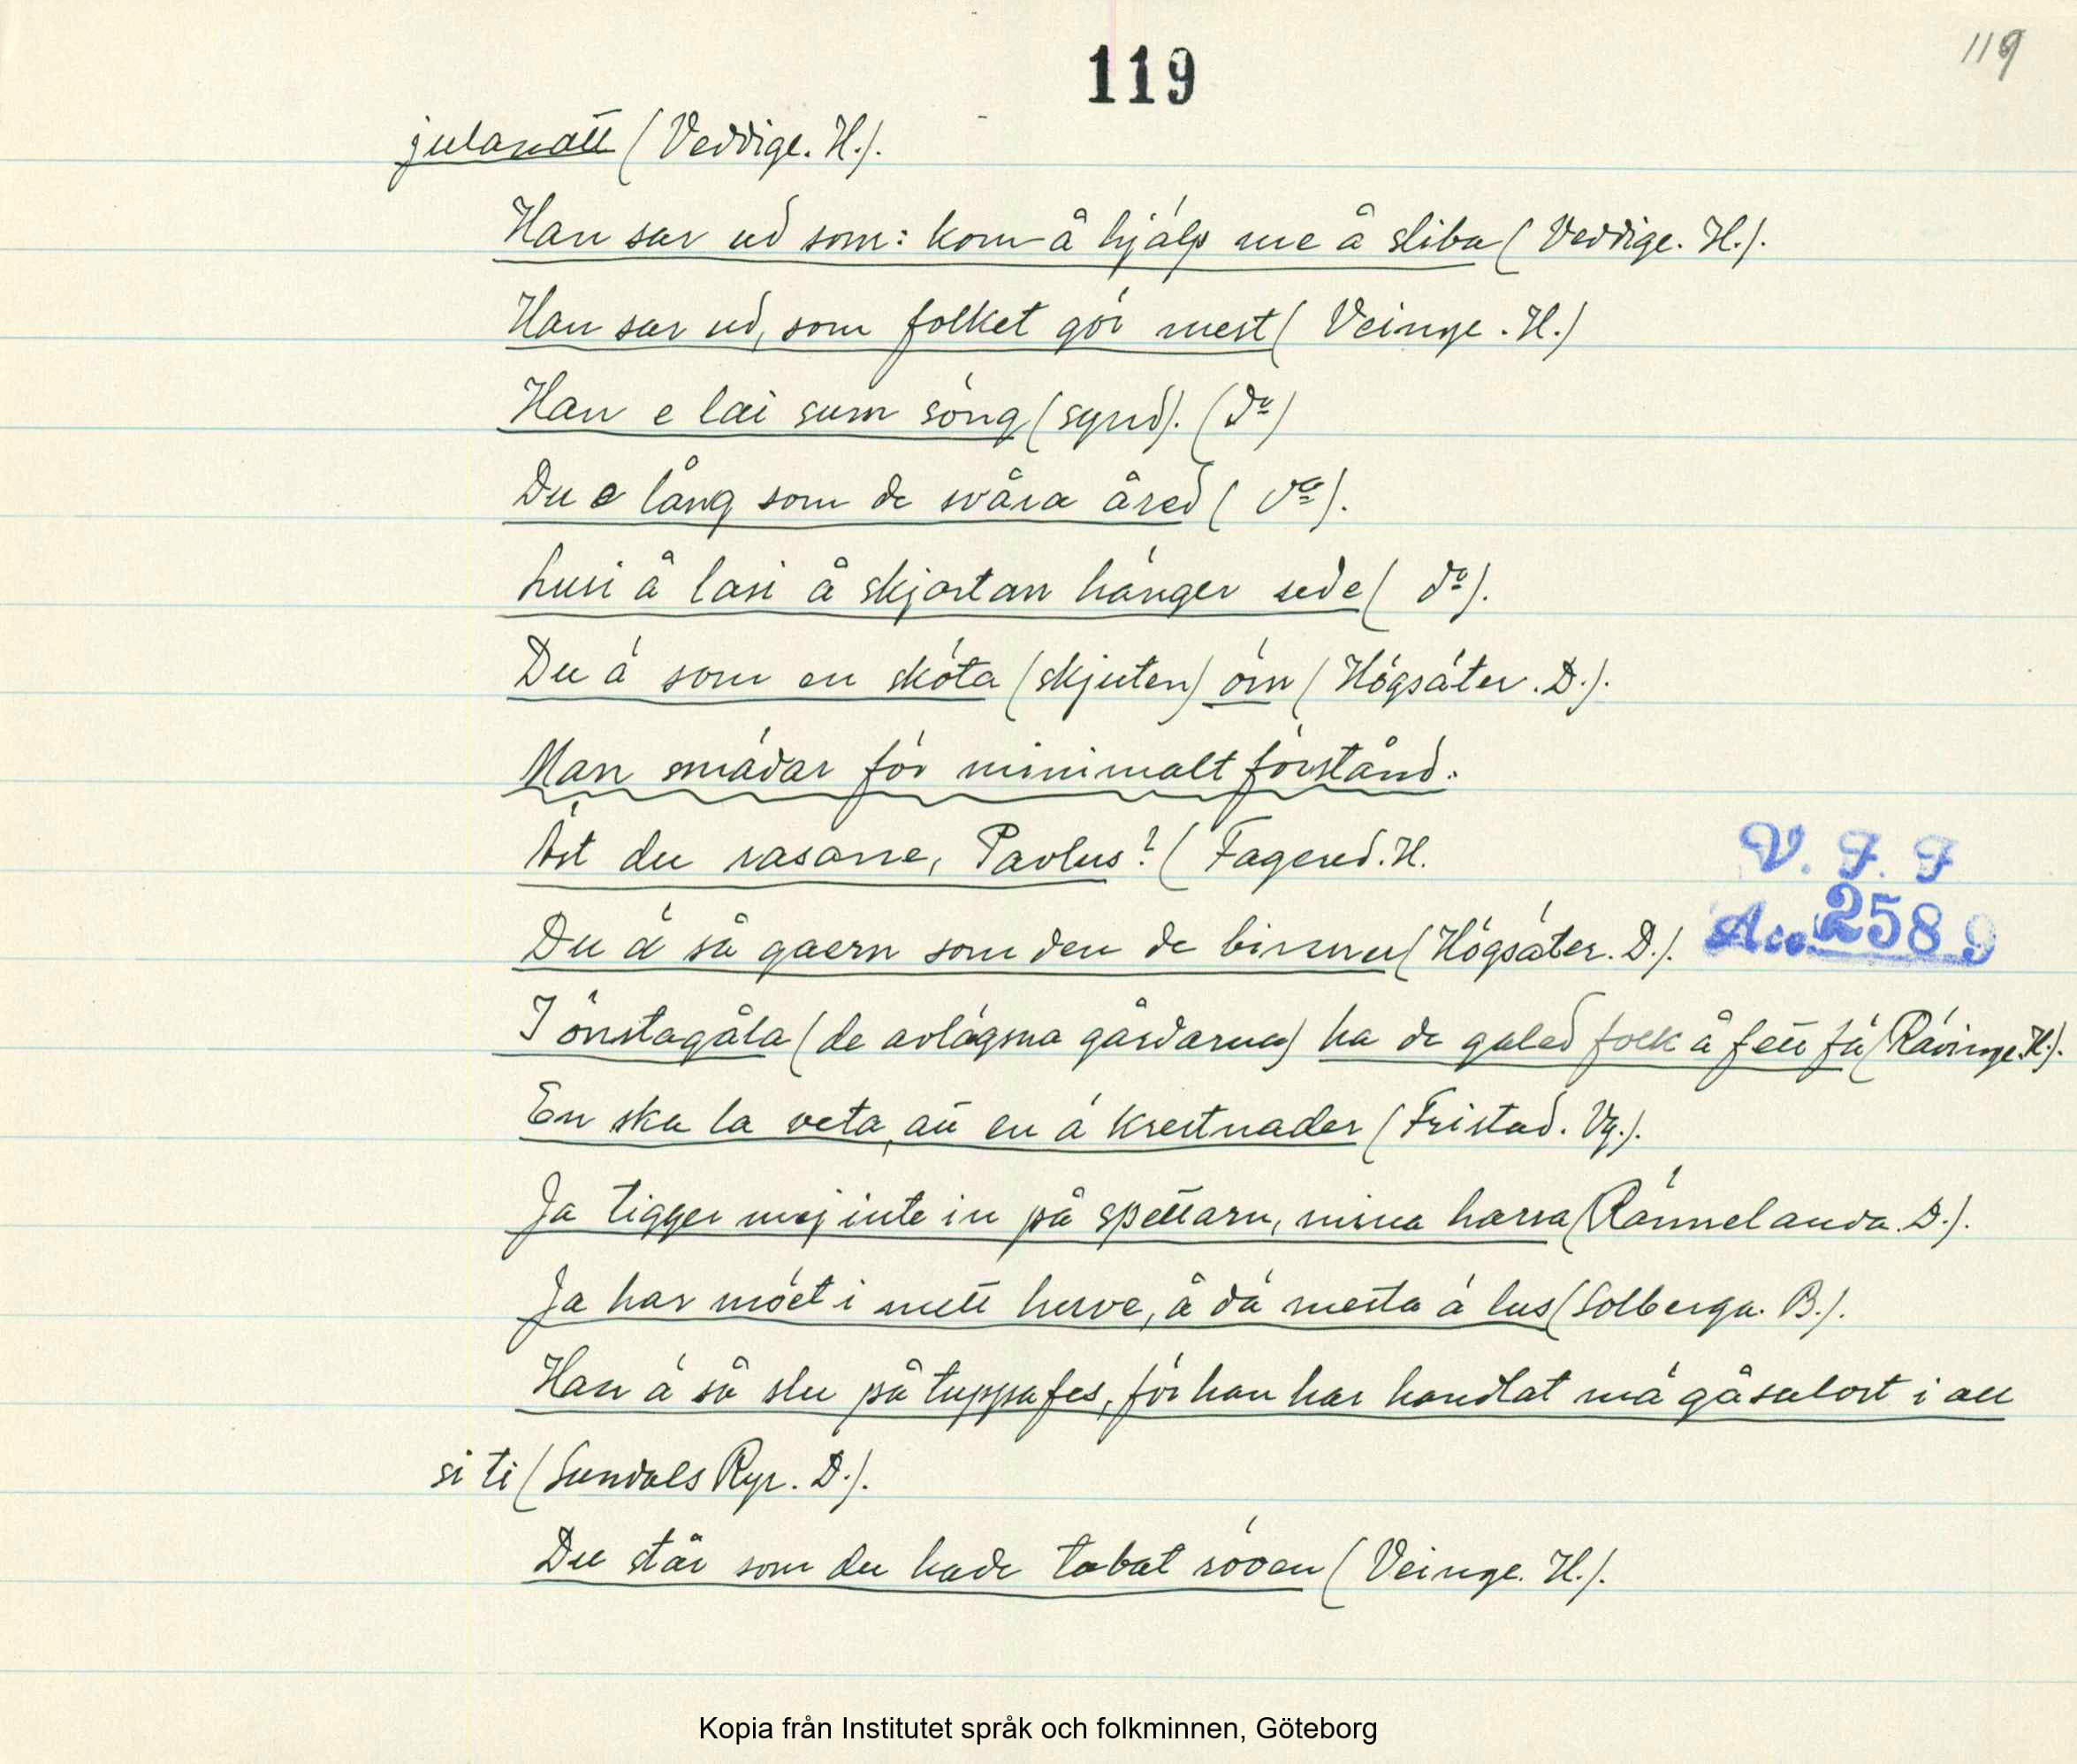 119
119
julanatt (Veddige. H.).
Han sar ud som: kom å hjälp me å sliba (Veddige. H.).
Han sar ud, som folket gör mest (Veinge. H.)
Han e lai sum söng (synd). (dº)
Du e lång som de svåra åred (dº).
Lusi å lasi å skjortan hänger ude (dº).
Du ä som en sköta (skjuten) örn (Högsäter. D.).
Man smädar för minimalt förstånd.
Äst du rasane, Pavlus? (Fagered. H.
Du ä så gaern som den de binner (Högsäter. D.).
V. F. F
Acc. 2589
I önstagåla (de avlägsna gårdarna) ha de galed folk å fett fä (Rävinge. H.).
En ska la veta, att en ä krestnader (Fristad. Vg.).
Ja tigger mej inte in på spettarn, mina harra (Rännelanda. D.).
Ja har möet i mett huve, å dä mesta ä lus (Solberga. B.).
Han ä så slu på tuppafes, för han har handlat mä gåsalort i all
si ti (Sundals Ryr. D.).
Du står som du hade tabat röven (Veinge. H.).
Kopia från Institutet språk och folkminnen, Göteborg